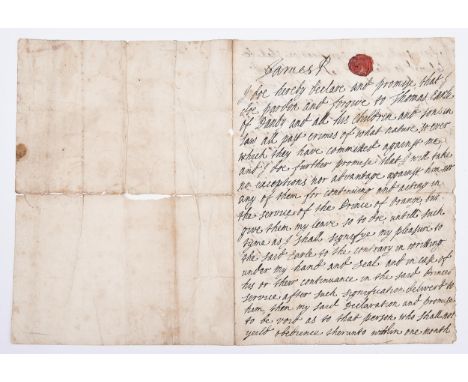 James R
I doe hereby declare and promise that I
doe pardon and forgive to Thomas Earle
of Danby and all his Children and sons in
law all past crimes of what nature so ever
which they have committed against me
and I doe further promise that I will take
no exceptions nor advantage against him nor
any of them for continuing and acting in
the service of the Prince of Orange, but
give them my leave so to doe untill such
time as I shall signefye my pleasure to
the said Earle to the contrary in writing
under my hand and seal and in case of
his or their continuance in the said Princes
service after such signification delivered to
him, then my said Declaration and promise
to be void as to that person who shall not
yeild obedience therunto within one month